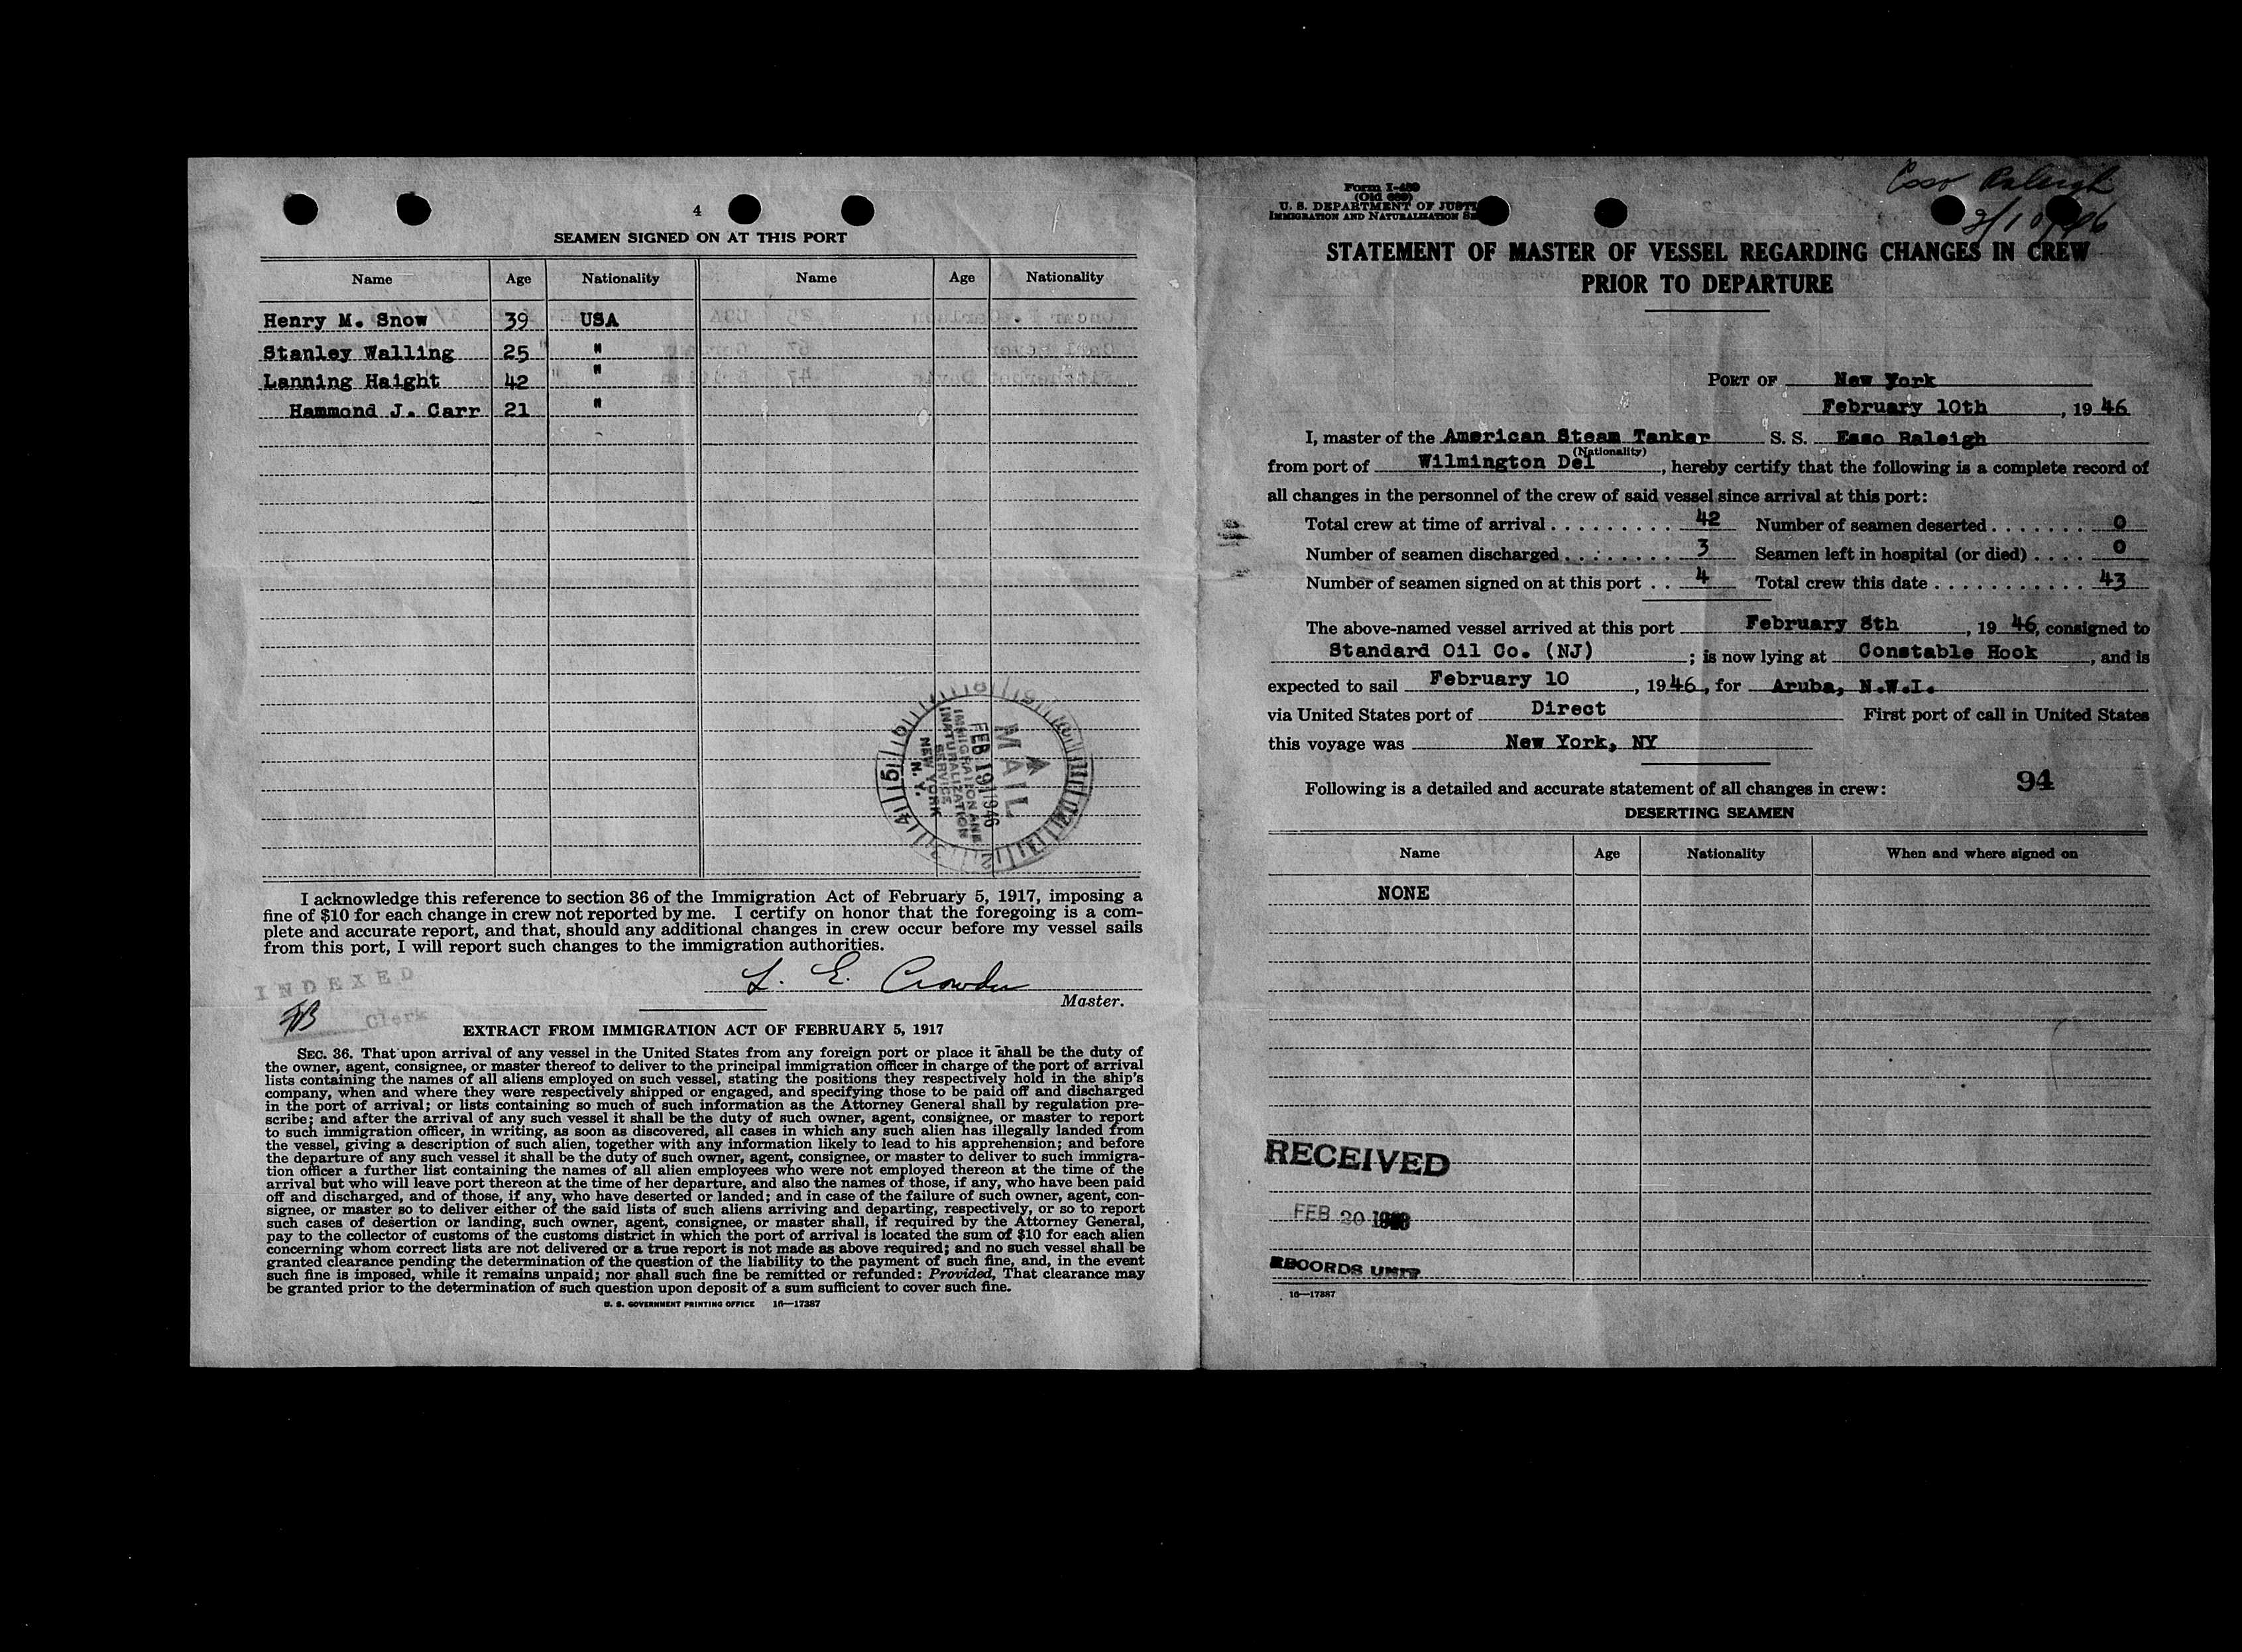 4
SEAMEN SIGNED ON AT THIS PORT
Name Age Nationality Name Age Nationality
Henry M. Snow 39 USA
Stanley Walling 25 "
Lanning Haight 42 "
Hammond J. Carr 21 "
MAIL
FEB 19 1946
IMMIGRATION AND
NATURALIZATION
SERVICE
NEW YORK
N. Y.
I acknowledge this reference to section 36 of the Immigration Act of February 5, 1917, imposing a
fine of $10 for each change in crew not reported by me. I certify on honor that the foregoing is a com-
plete and accurate report, and that, should any additional changes in crew occur before my vessel sails
from this port, I will report such changes to the immigration authorities.
L. E. Crowder
Master.
INDEXED
Clerk
EXTRACT FROM IMMIGRATION ACT OF FEBRUARY 5, 1917
SEC. 36. That upon arrival of any vessel in the United States from any foreign port or place it shall be the duty of
the owner, agent, consignee, or master thereof to deliver to the principal immigration officer in charge of the port of arrival
lists containing the names of all aliens employed on such vessel, stating the positions they respectively hold in the ship's
company, when and where they were respectively shipped or engaged, and specifying those to be paid off and discharged
in the port of arrival; or lists containing so much of such information as the Attorney General shall by regulation pre-
scribe; and after the arrival of any such vessel it shall be the duty of such owner, agent, consignee, or master to report
to such immigration officer, in writing, as soon as discovered, all cases in which any such alien has illegally landed from
the vessel, giving a description of such alien, together with any information likely to lead to his apprehension; and before
the departure of any such vessel it shall be the duty of such owner, agent, consignee, or master to deliver to such immigra-
tion officer a further list containing the names of all alien employees who were not employed thereon at the time of the
arrival but who will leave port thereon at the time of her departure, and also the names of those, if any, who have been paid
off and discharged, and of those, if any, who have deserted or landed; and in case of the failure of such owner, agent, con-
signee, or master so to deliver either of the said lists of such aliens arriving and departing, respectively, or so to report
such cases of desertion or landing, such owner, agent, consignee, or master shall, if required by the Attorney General,
pay to the collector of customs of the customs district in which the port of arrival is located the sum of $10 for each alien
concerning whom correct lists are not delivered or a true report is not made as above required; and no such vessel shall be
granted clearance pending the determination of the question of the liability to the payment of such fine, and, in the event
such fine is imposed, while it remains unpaid; nor shall such fine be remitted or refunded: Provided, That clearance may
be granted prior to the determination of such question upon deposit of a sum sufficient to cover such fine.
U. S. GOVERNMENT PRINTING OFFICE 16—17387
Esso Raleigh
2/10/46
Form I-489
(Old 689)
U. S. DEPARTMENT OF JUSTI
IMMIGRATION AND NATURALIZATION SE
STATEMENT OF MASTER OF VESSEL REGARDING CHANGES IN CREW
PRIOR TO DEPARTURE
PORT OF New York
February 10th, 1946
I, master of the American Steam Tanker S. S. Esso Raleigh
(Nationality)
from port of Wilmington Del, hereby certify that the following is a complete record of
all changes in the personnel of the crew of said vessel since arrival at this port:
Total crew at time of arrival . . . . . . . . . 42 Number of seamen deserted . . . . . . . 0
Number of seamen discharged . . . . . . . . 3 Seamen left in hospital (or died) . . . . 0
Number of seamen signed on at this port . . 4 Total crew this date . . . . . . . . . . . 43
The above-named vessel arrived at this port February 8th, 1946, consigned to
Standard Oil Co. (NJ); is now lying at Constable Hook, and is
expected to sail February 10, 1946, for Aruba, N.W.I.
via United States port of Direct First port of call in United States
this voyage was New York, NY
94
Following is a detailed and accurate statement of all changes in crew:
DESERTING SEAMEN
Name Age Nationality When and where signed on
NONE
RECEIVED
FEB 20
RECORDS UNIT
16—17387